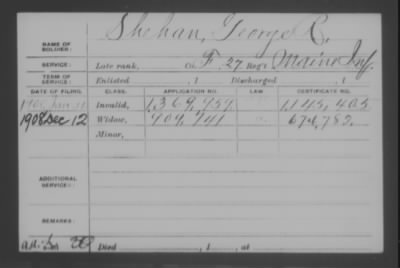 NAME OF SOLDIER: Shehan, George R.
SERVICE: Late rank, Co. F, 27 Reg't Maine Inf.
TERM OF SERVICE: Enlisted , 1 Discharged , 1
DATE OF FILING. CLASS. APPLICATION NO. LAW. CERTIFICATE NO.
Invalid, 1,369,757 1,145,405
1908 Dec 12 Widow, 909,741 674,785
Minor,
ADDITIONAL SERVICE:
REMARKS:
Died , 1 , at